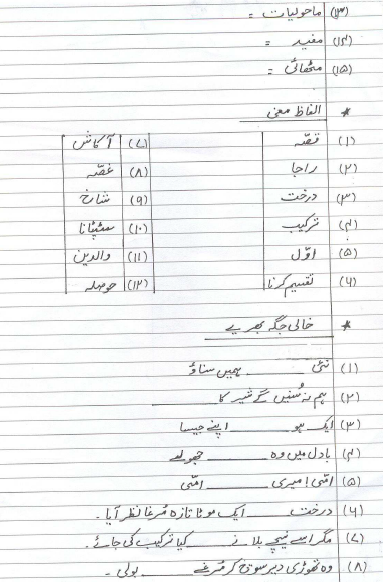 (۱۳) ماحولیات =
(۱۴) مفید =
(۱۵) مٹھائی =
* الفاظ معنی
(۱) قصّہ (۷) آکاش
(۲) راجا (۸) غصّہ
(۳) درخت (۹) شاخ
(۴) ترکیب (۱۰) سٹپٹانا
(۵) اوّل (۱۱) والدین
(۶) تقسیم کرنا (۱۲) حوصلہ
* خالی جگہ بھریے
(۱) نئی ______ ہمیں سناؤ
(۲) ہم نہ سُنیں گے شیر کا ______
(۳) ایک ہو ______ اپنے جیسا
(۴) بادل میں وہ ______ جھولے
(۵) امّی! میری ______ امّی
(۶) درخت ______ ایک موٹا تازہ مُرغا نظر آیا۔
(۷) مگر اسے نیچے بلانے ______ کیا ترکیب کی جائے۔
(۸) وہ تھوڑی دیر سوچ کر مُرغے ______ بولی۔